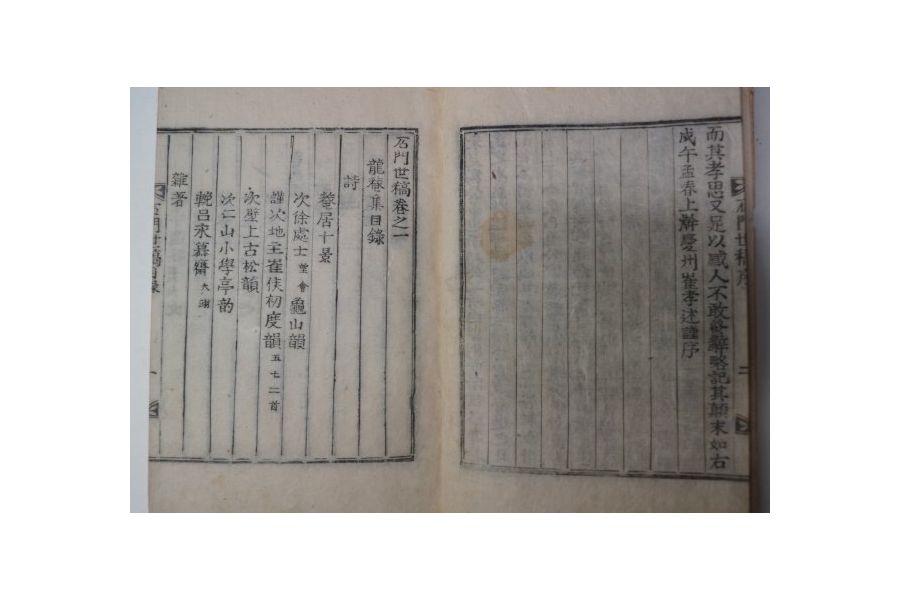 而其孝思又足以感人不敢終辭略記其顛末如右
戊午孟春上澣慶州崔孝述謹序
石門世稿序
二
石門世稿卷之一
龍菴集目錄
詩
菴居十景
次徐處士 會 龜山韻
謹次地主崔侯初度韻 五七二首
次壁上古松韻
次仁山小學亭韵
輓呂永慕齋 大翊
雜著
石門世稿目錄
一